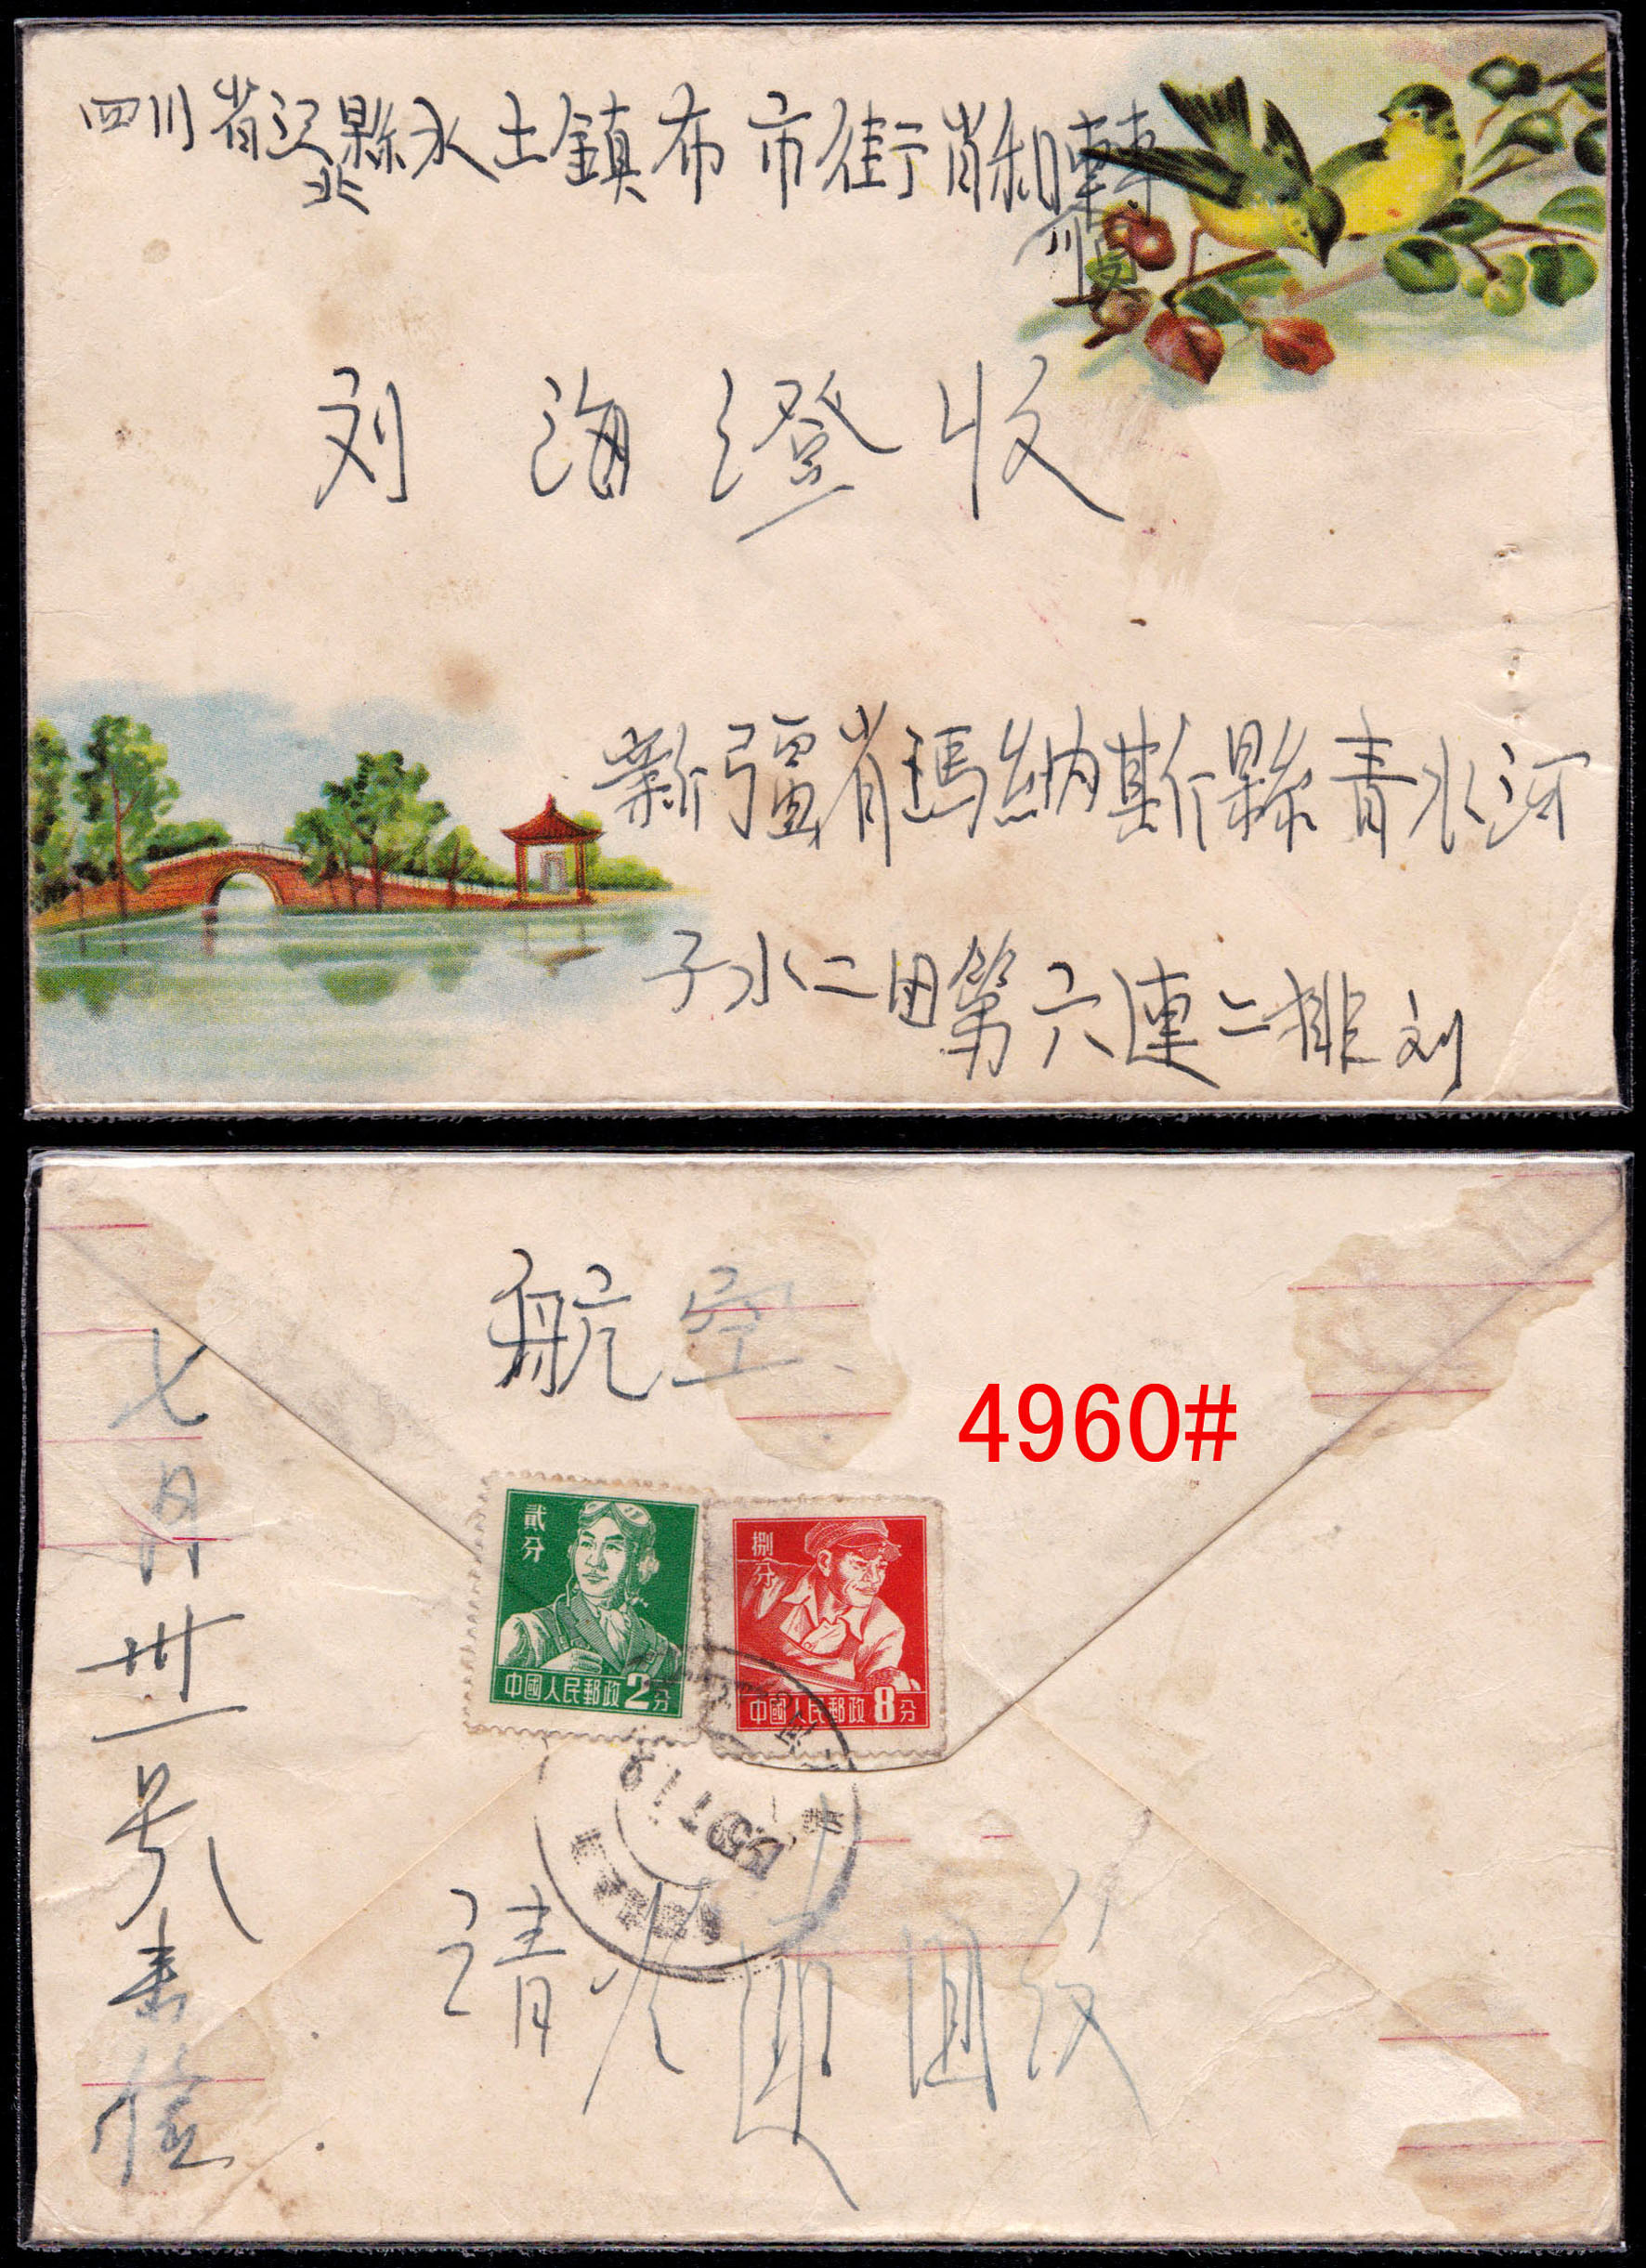 四川省江北縣水土鎮布市街肖和順轉
刘海澄收
新疆省瑪納斯縣青水河
子水二田第六連二排刘
航空
4960#
貳分
中國人民郵政2分
捌分
中國人民郵政8分
七月卅一号
請